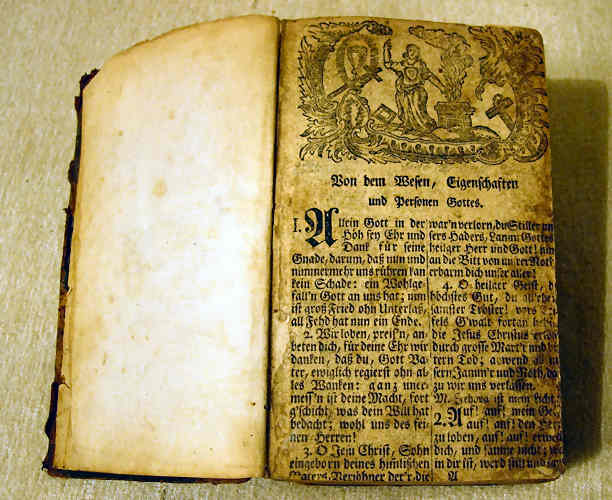 Von dem Wesen, Eigenschaften
und Personen Gottes.
I. Allein Gott in der
Höh sey Ehr und
Dank für seine
Gnade, darum, daß nun und
nimmermehr uns rühren kan
kein Schade: ein Wohlge-
fall'n Gott an uns hat; nun
ist groß Fried ohn Unterlaß,
all Fehd hat nun ein Ende.
2. Wir loben, preis'n, an-
beten dich, für deine Ehr wir
danken, daß du, Gott Va-
ter, ewiglich regierst ohn al-
les Wanken: ganz uner-
mess'n ist deine Macht, fort
g'schicht, was dein Will hat
bedacht; wohl uns des fei-
nen Herren!
3. O Jesu Christ, Sohn
eingeborn deines himlischen
Vaters, Versöhner der'r, die
war'n verlorn, du Stiller un-
sers Haders, Lamm Gottes
heilger Herr und Gott! nim
an die Bitt von unsrer Noth
erbarm dich unser aller!
4. O heilger Geist, du
höchstes Gut, du
samster Tröster! vors
fels G'walt fortan
die Jesus Christus
durch grosse Mart'r und
tern Tod; abwend
sern Jamm'r und Noth, da-
zu wir uns verlassen.
M. Jehova ist mein Licht
2. Auf! auf! mein
auf! auf! den
zu loben, auf! auf!
dich, und säume nicht;
in dir ist, werd still und
A